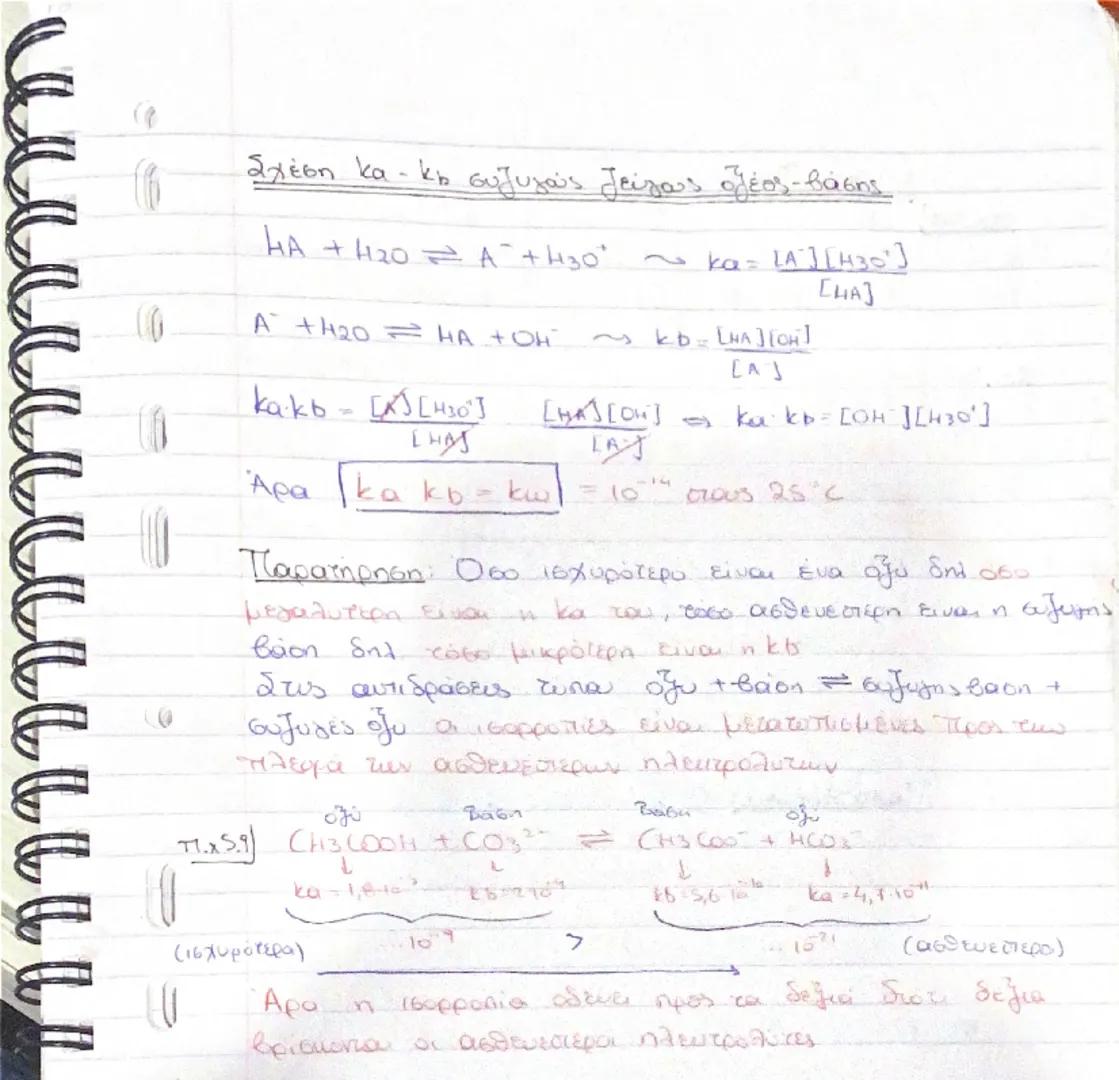 Σχέση ka - kb συζυγούς ζεύγους οξέος-βάσης
HA + H2O ⇌ A⁻ + H3O⁺ ⤳ ka = [A⁻][H3O⁺]
[HA]
A⁻ + H2O ⇌ HA + OH⁻ ⤳ kb = [HA][OH⁻]
[A⁻]
ka·kb = [A⁻][H3O⁺] [HA][OH⁻] ⇔ ka·kb = [OH⁻][H3O⁺]
[HA] [A⁻]
Άρα ka kb = kw = 10⁻¹⁴ στους 25°C
Παρατήρηση: Όσο ισχυρότερο είναι ένα οξύ δηλ όσο
μεγαλύτερη είναι η ka του, τόσο ασθενέστερη είναι η συζυγής
βάση δηλ τόσο μικρότερη είναι η kb
Στις αντιδράσεις τύπου οξύ + βάση ⇌ συζυγής βάση +
συζυγές οξύ οι ισορροπίες είναι μετατοπισμένες προς την
πλευρά των ασθενέστερων ηλεκτρολυτών
οξύ βάση βάση οξύ
π.χ 5.9) CH3COOH + CO3²⁻ ⇌ CH3COO⁻ + HCO3⁻
↓ ↓ ↓ ↓
kb = 5,6·10⁻¹⁰ ka = 4,7·10⁻¹¹
(ισχυρότερα) ...10⁻⁹ > ...10⁻²¹ (ασθενέστερα)
Άρα η ισορροπία οδεύει προς τα δεξιά διότι δεξιά
βρίσκονται οι ασθενέστεροι ηλεκτρολύτες